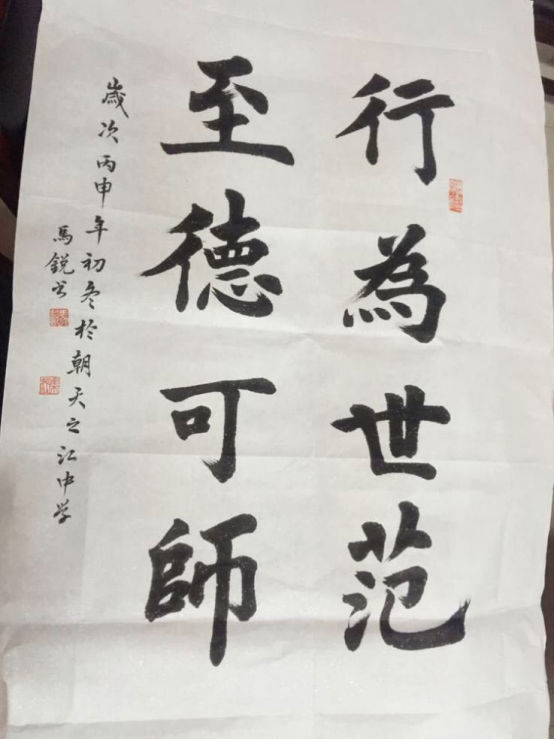 行為世范
至德可師
歲次丙申年初冬於朝天之江中学
馬銳书